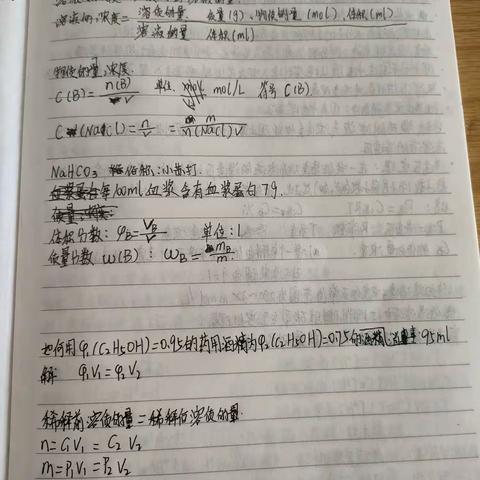 溶液的浓度= 溶质的量 质量(g)、物质的量(mol)、体积(ml)
溶液的量 体积(ml)
物质的量浓度
C(B)= n(B)/V 单位: mol/L 符号 C(B)
C(NaCl)= n/V = m/M(NaCl)V
NaHCO3 俗称:小苏打.
每100ml血浆含有血浆蛋白7g.
体积分数: φB= VB/V 单位:1
质量分数 ω(B): ωB= mB/m
如何用φ1(C2H5OH)=0.95的药用酒精为φ2(C2H5OH)=0.75的酒精 95ml
解: φ1V1=φ2V2
稀释前溶质的量=稀释后溶质的量.
n=C1V1=C2V2
m=ρ1V1=ρ2V2